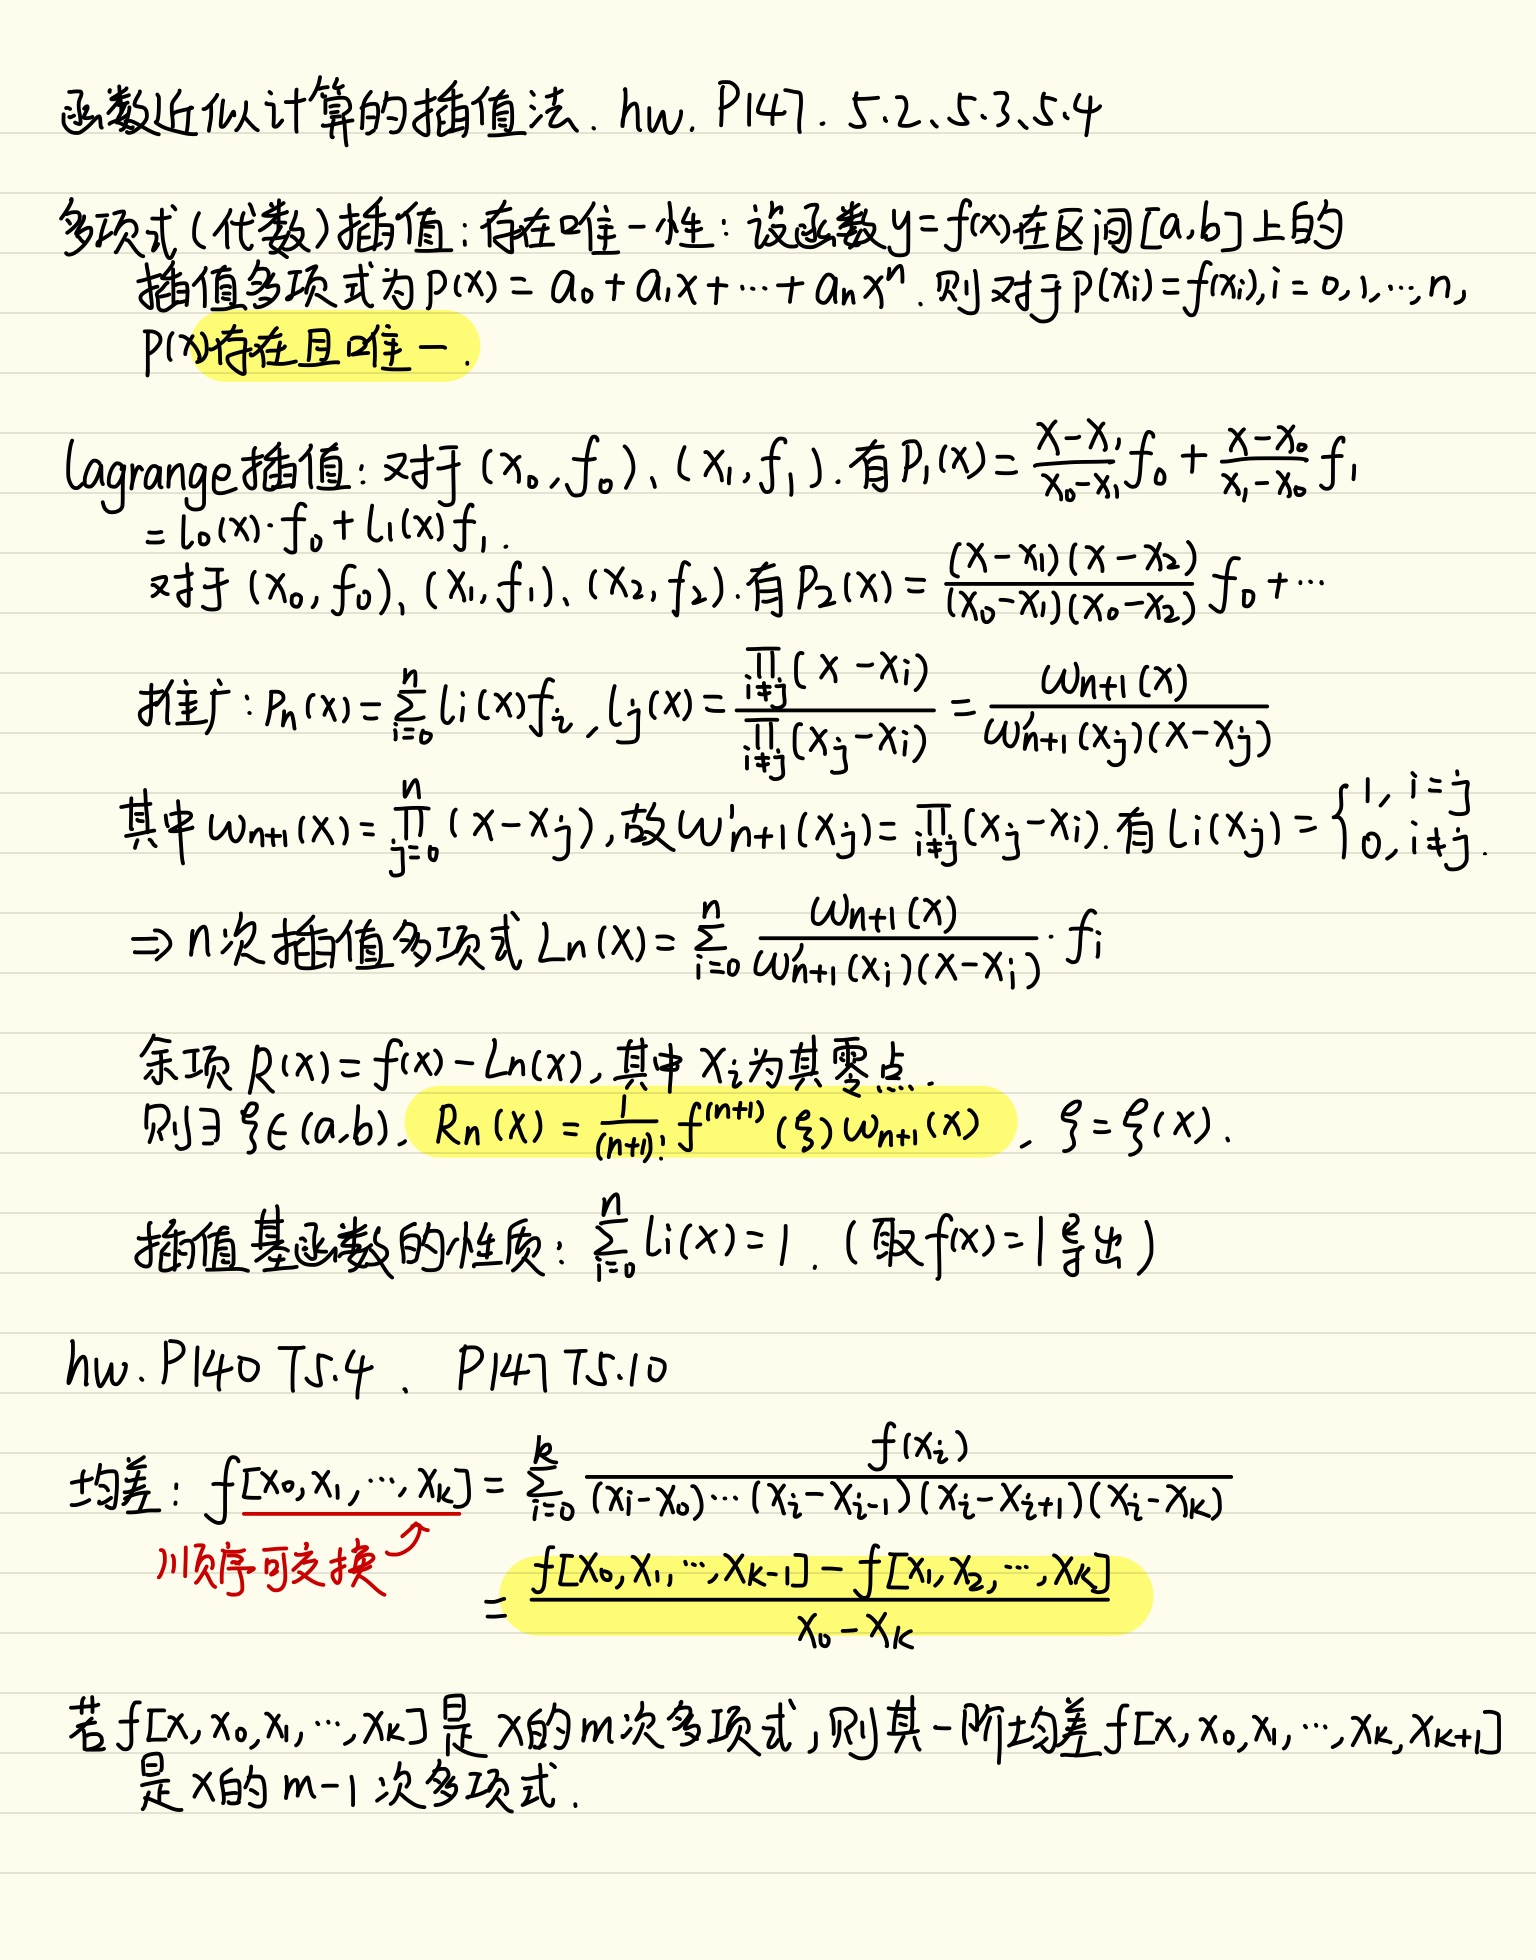 函数近似计算的插值法. hw. P147. 5.2、5.3、5.4
多项式(代数)插值:存在唯一性:设函数y=f(x)在区间[a,b]上的
插值多项式为p(x) = a₀+a₁x+⋯+aₙxⁿ. 则对于p(xᵢ)=f(xᵢ), i=0,1,⋯,n,
p(x)存在且唯一.
Lagrange插值:对于(x₀,f₀)、(x₁,f₁).有P₁(x)= \frac{x-x₁}{x₀-x₁}f₀ + \frac{x-x₀}{x₁-x₀}f₁
= l₀(x)·f₀+l₁(x)f₁.
对于(x₀,f₀)、(x₁,f₁)、(x₂,f₂).有P₂(x)= \frac{(x-x₁)(x-x₂)}{(x₀-x₁)(x₀-x₂)}f₀+⋯
推广:Pₙ(x)=\sum_{i=0}^{n} lᵢ(x)fᵢ, lⱼ(x)= \frac{\prod_{i≠j}(x-xᵢ)}{\prod_{i≠j}(xⱼ-xᵢ)} = \frac{ωₙ₊₁(x)}{ω'ₙ₊₁(xⱼ)(x-xⱼ)}
其中ωₙ₊₁(x)=\prod_{j=0}^{n}(x-xⱼ),故ω'ₙ₊₁(xⱼ)=\prod_{i≠j}(xⱼ-xᵢ).有lᵢ(xⱼ)= { 1, i=j 0, i≠j.
⇒ n次插值多项式Lₙ(x)=\sum_{i=0}^{n} \frac{ωₙ₊₁(x)}{ω'ₙ₊₁(xᵢ)(x-xᵢ)}·fᵢ
余项 R(x)=f(x)-Lₙ(x),其中xᵢ为其零点.
则∃ξ∈(a,b), Rₙ(x)= \frac{1}{(n+1)!}f^{(n+1)}(ξ)ωₙ₊₁(x), ξ=ξ(x).
插值基函数的性质:\sum_{i=0}^{n} lᵢ(x)=1.(取f(x)=1导出)
hw. P140 T5.4. P147 T5.10
均差:f[x₀,x₁,⋯,xₖ]= \sum_{i=0}^{k} \frac{f(xᵢ)}{(xᵢ-x₀)⋯(xᵢ-xᵢ₋₁)(xᵢ-xᵢ₊₁)(xᵢ-xₖ)}
顺序可交换
= \frac{f[x₀,x₁,⋯,xₖ₋₁]-f[x₁,x₂,⋯,xₖ]}{x₀-xₖ}
若f[x,x₀,x₁,⋯,xₖ]是x的m次多项式,则其一阶均差f[x,x₀,x₁,⋯,xₖ,xₖ₊₁]
是x的m-1次多项式.